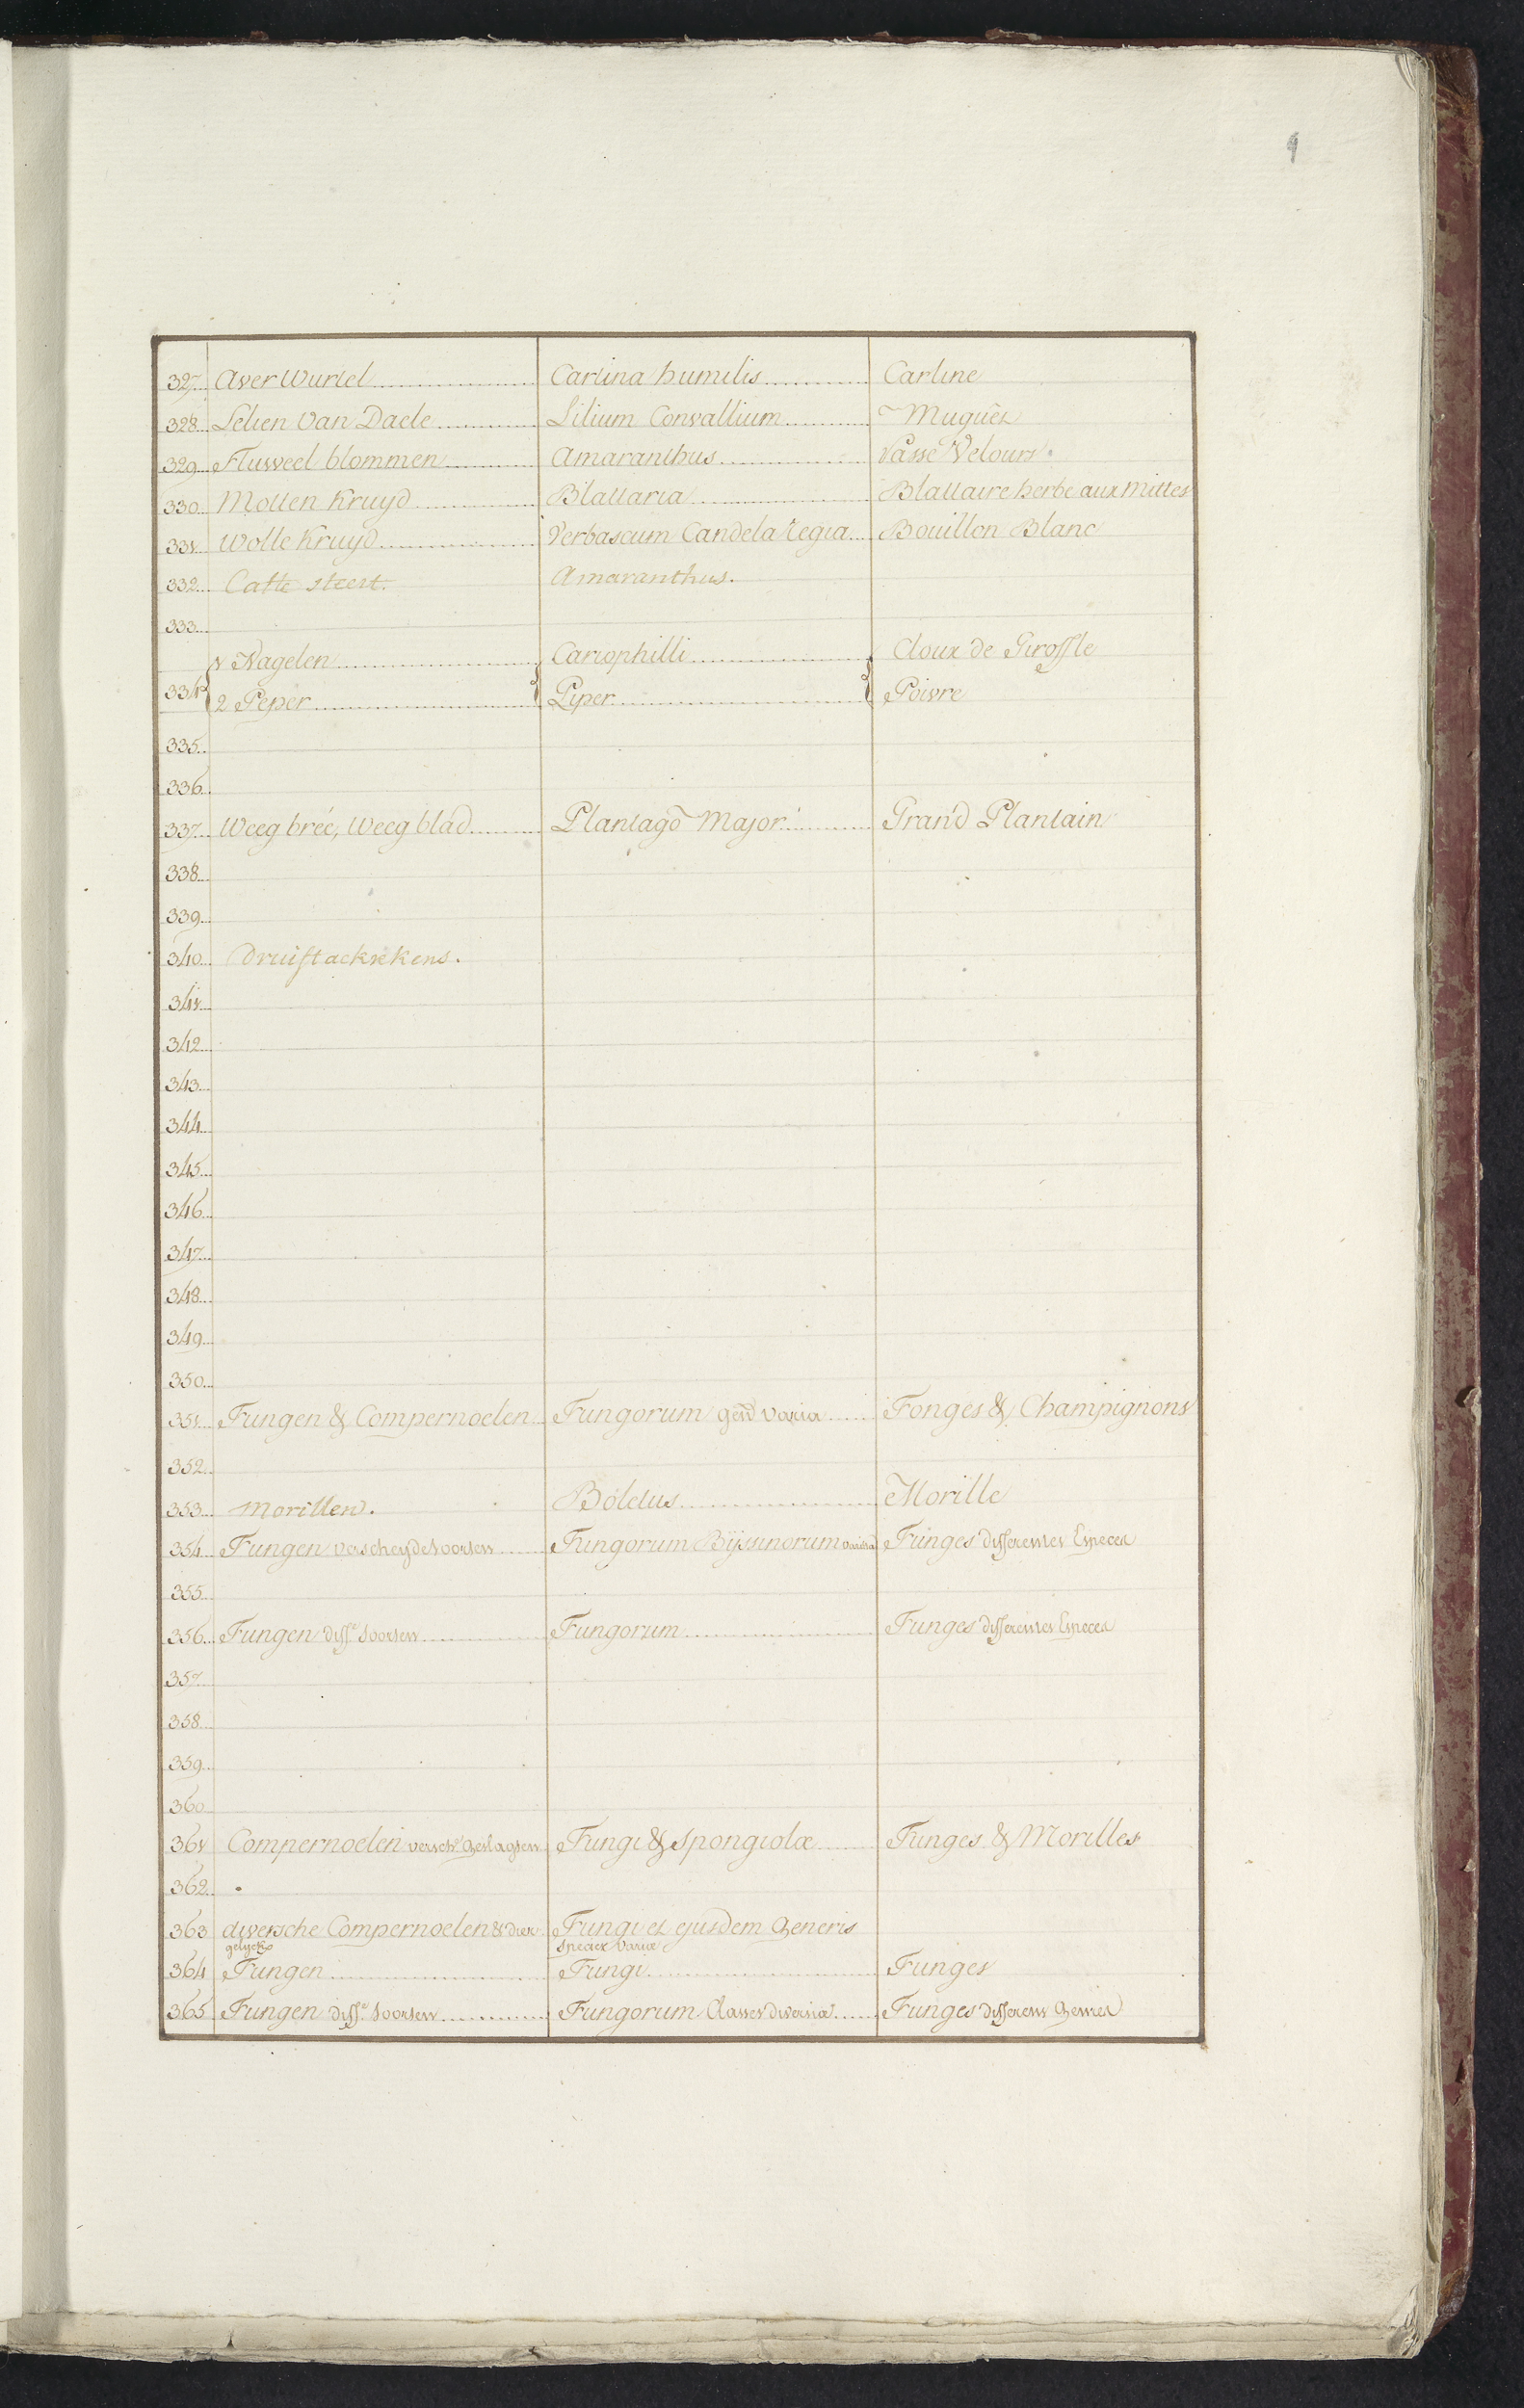 9
327 Aver Wurtel Carlina humilis Carline
328 Lelien Van Daele Lilium Convallium Muguêt
329 Fluweel blommen Amaranthus Passe Velours
330 Motten Kruyd Blattaria Blattaire herbe aux Mittes
331 Wolle Kruyd Verbascum Candela Regia Bouillon Blanc
332 Catte steert. Amaranthus.
333
1 Nagelen Cariophilli Cloux de Giroffle
334 2 Peper Piper Poivre
335
336
337 Weeg breé, Weeg blad Plantago Major Grand Plantain
338
339
340 Druiftackxkens.
341
342
343
344
345
346
347
348
349
350
351 Fungen & Compernoelen Fungorum genā varia Fonges & Champignons
352
353 Morillen. Boletus Morille
354 Fungen verscheyde soorten Fungorum Bijssinorum varia Funges differentes Especes
355
356 Fungen diffe. soorten Fungorum Funges differentes Especes
357
358
359
360
361 Compernoelen versch. geslagten Fungi & Spongiolæ Funges & Morilles
362
363 diversche Compernoelen & dier Fungi et ejusdem Generis
gelycke species variæ
364 Fungen Fungi Funges
365 Fungen diffe. soorten Fungorum Classes diversæ Funges differens Genres